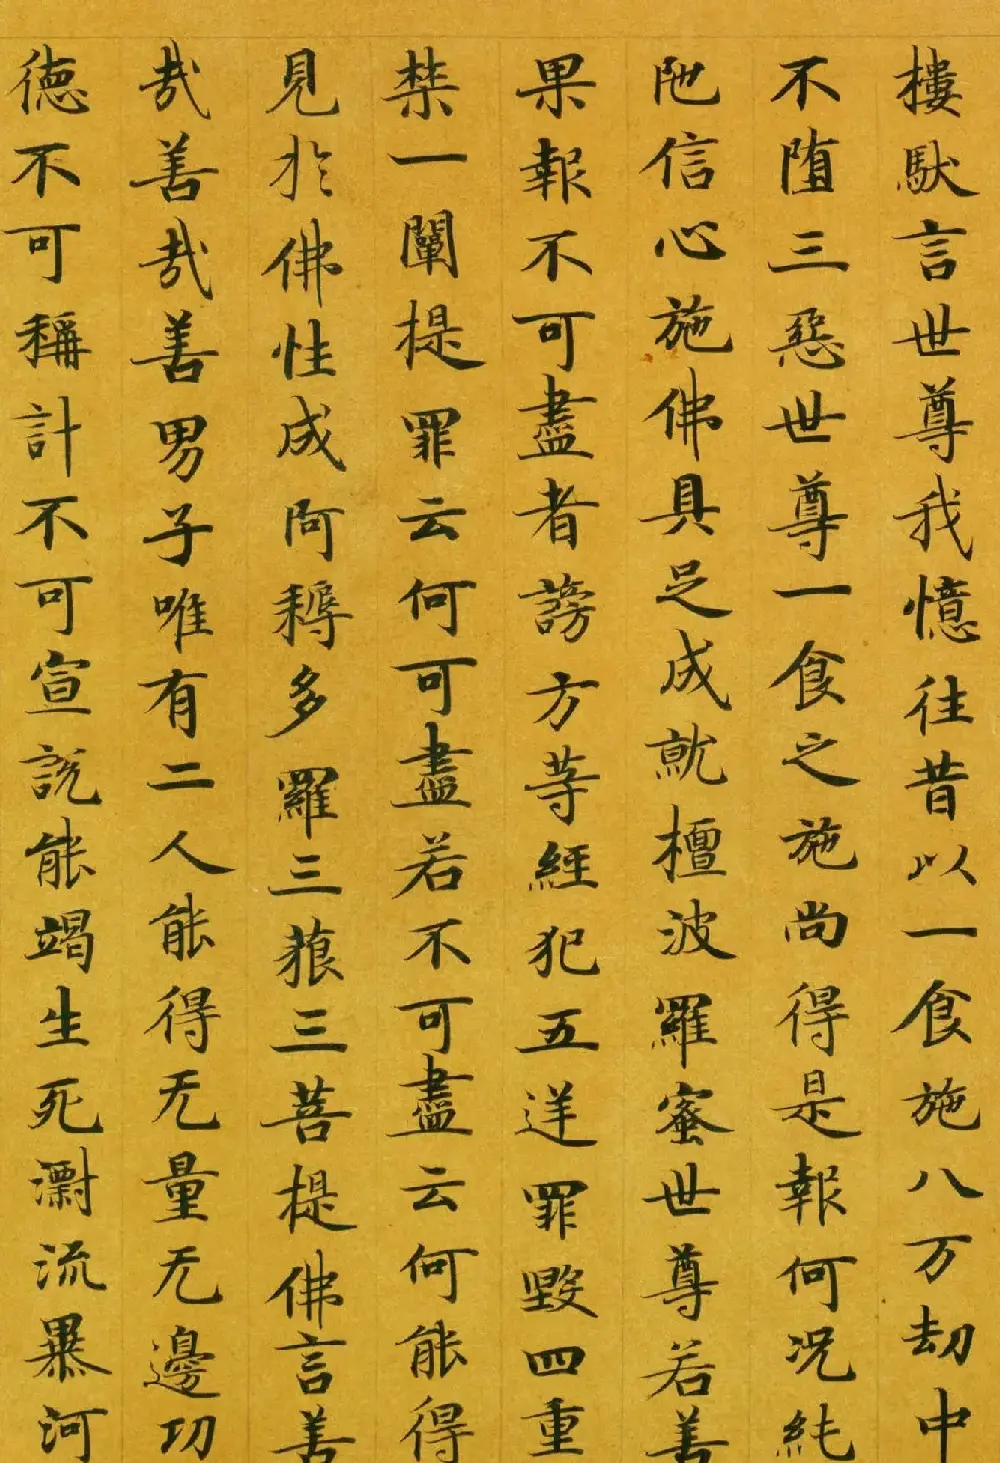 樓馱言世尊我憶往昔以一食施八万劫中
不墮三惡世尊一食之施尚得是報何況純
陁信心施佛具足成就檀波羅蜜世尊若善
果報不可盡者謗方等經犯五逆罪毀四重
禁一闡提罪云何可盡若不可盡云何能得
見於佛性成阿耨多羅三藐三菩提佛言善
哉善哉善男子唯有二人能得无量无邊功
德不可稱計不可宣說能竭生死瀑流暴河